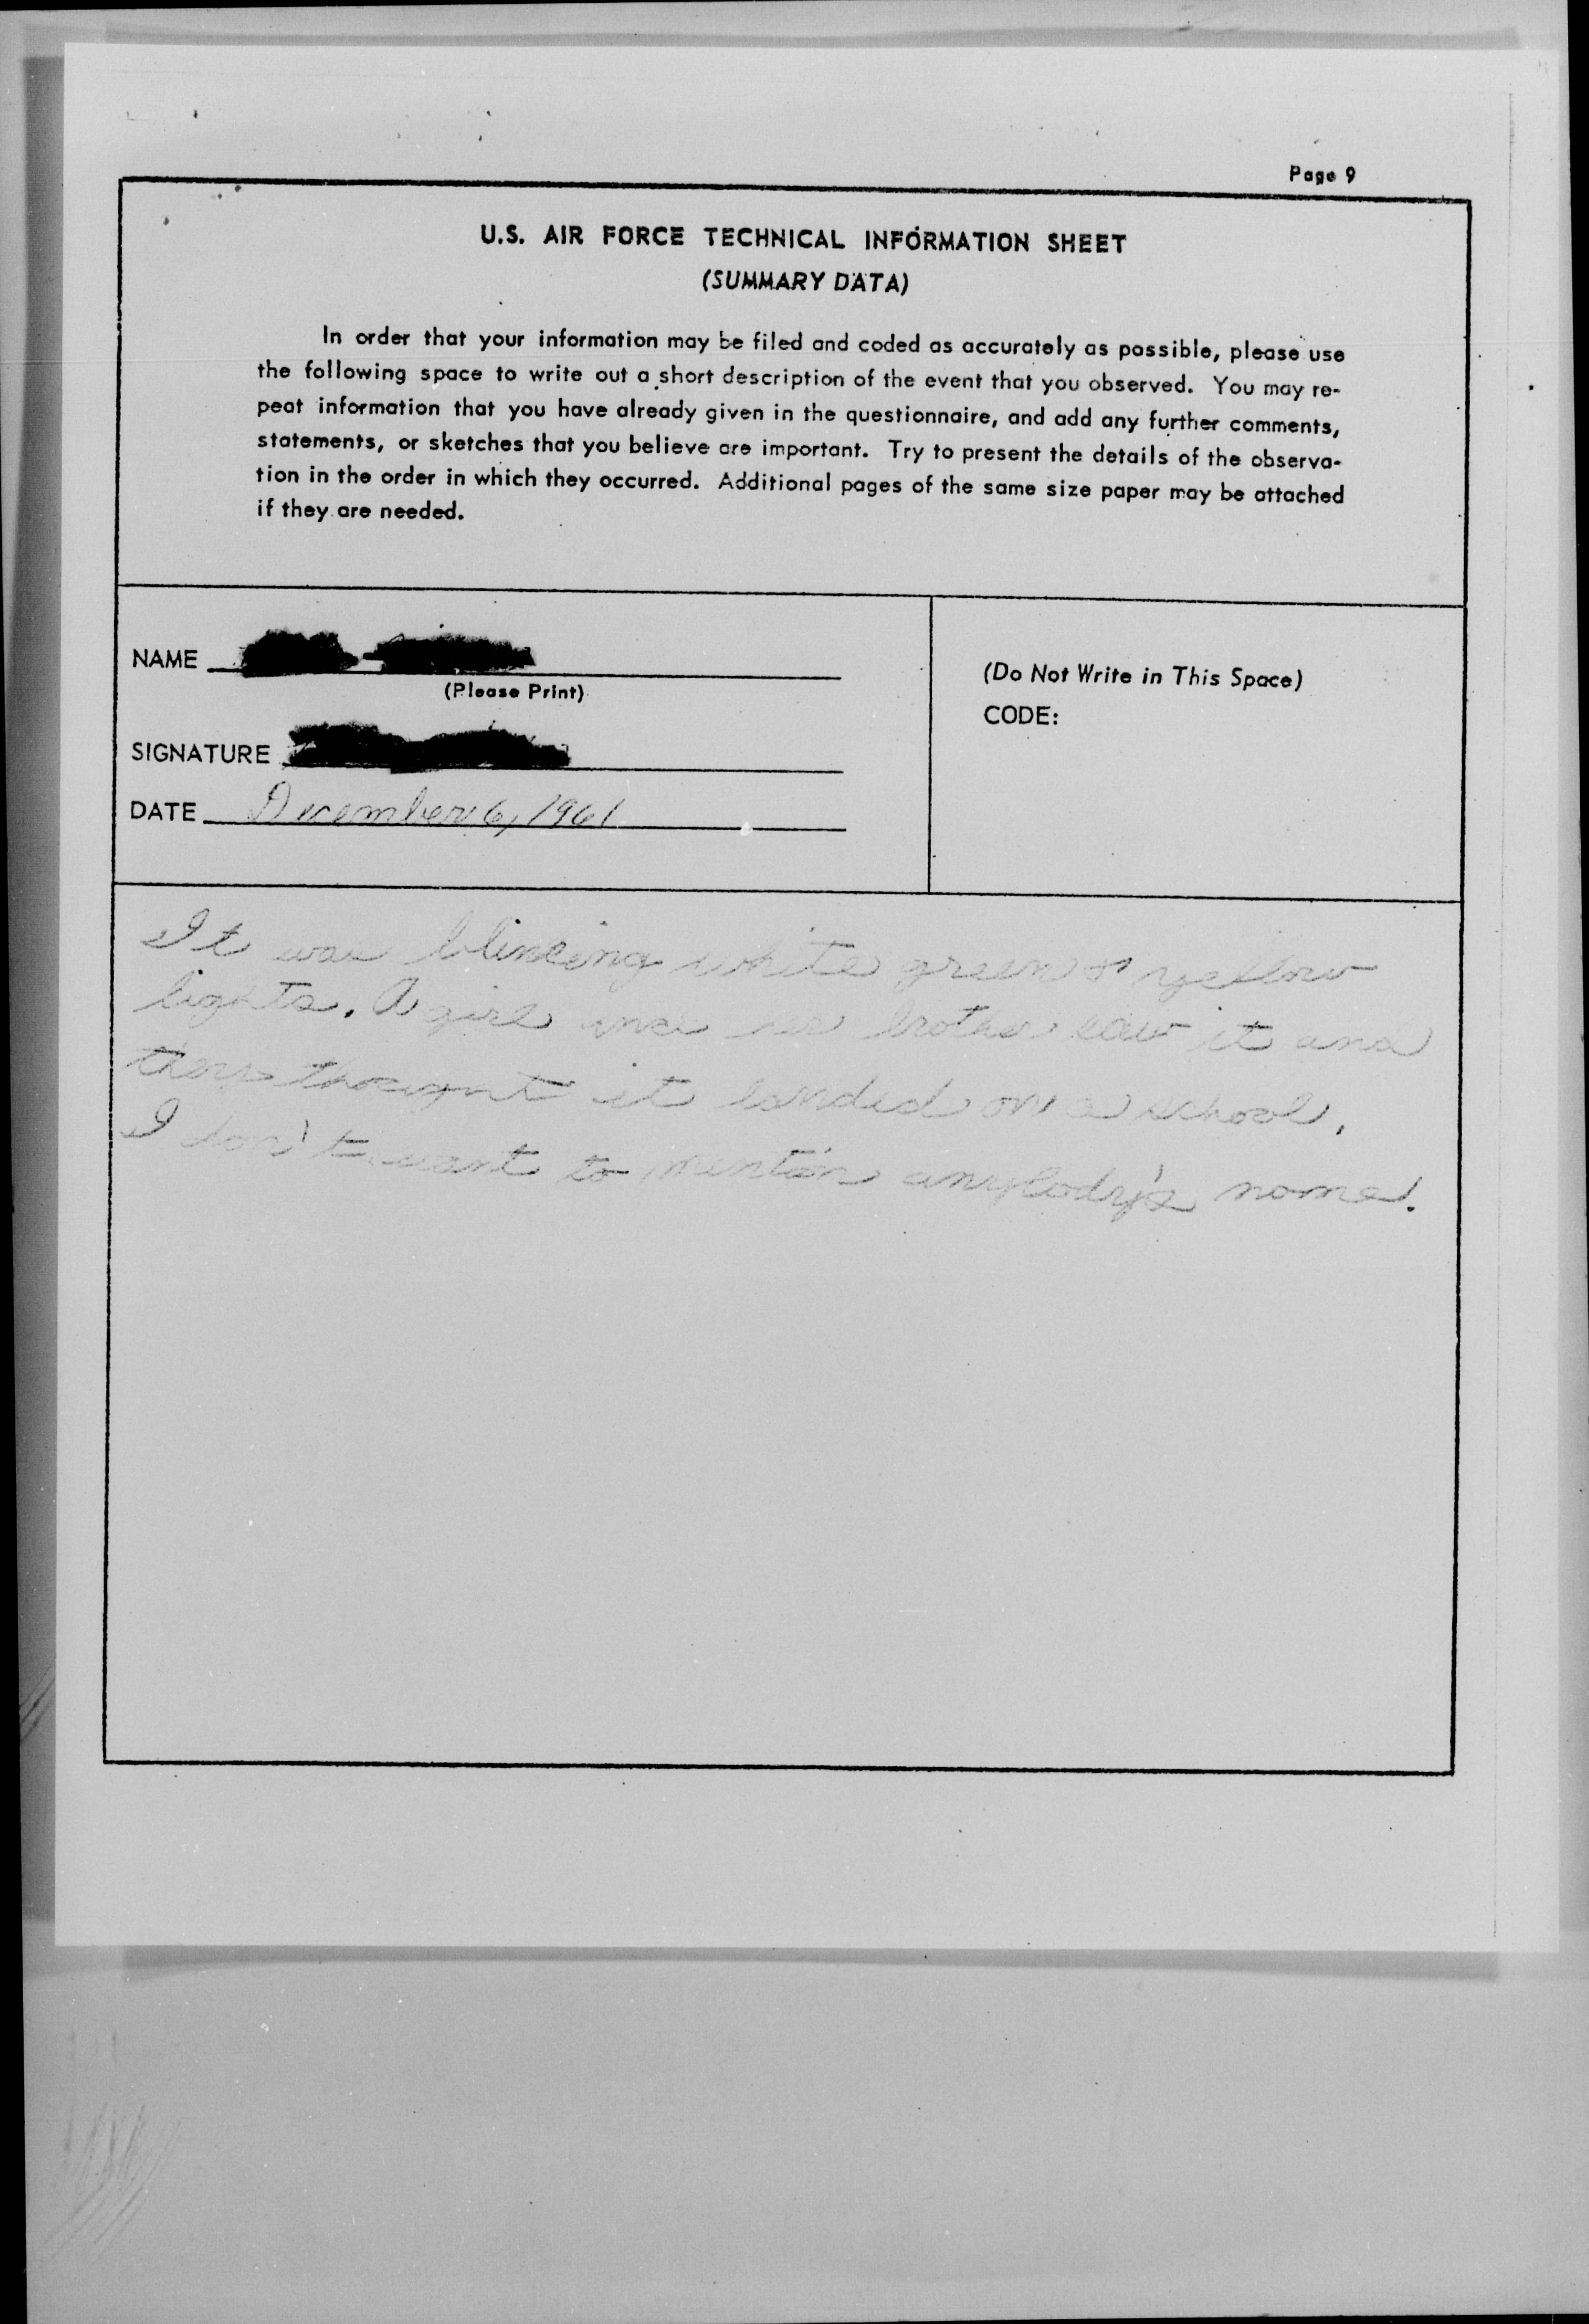 Page 9
U.S. AIR FORCE TECHNICAL INFORMATION SHEET
(SUMMARY DATA)
In order that your information may be filed and coded as accurately as possible, please use
the following space to write out a short description of the event that you observed. You may re-
peat information that you have already given in the questionnaire, and add any further comments,
statements, or sketches that you believe are important. Try to present the details of the observa-
tion in the order in which they occurred. Additional pages of the same size paper may be attached
if they are needed.
NAME
(Please Print)
SIGNATURE
DATE December 6, 1961
(Do Not Write in This Space)
CODE:
It was blinking white green & yellow
lights. A girl and her brother saw it and
they thought it landed on a school.
I don't want to mention anybody's name.